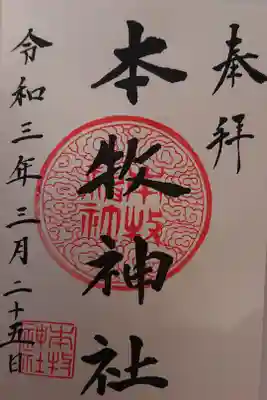 奉拝
本牧神社
令和三年三月二十五日
本牧神社